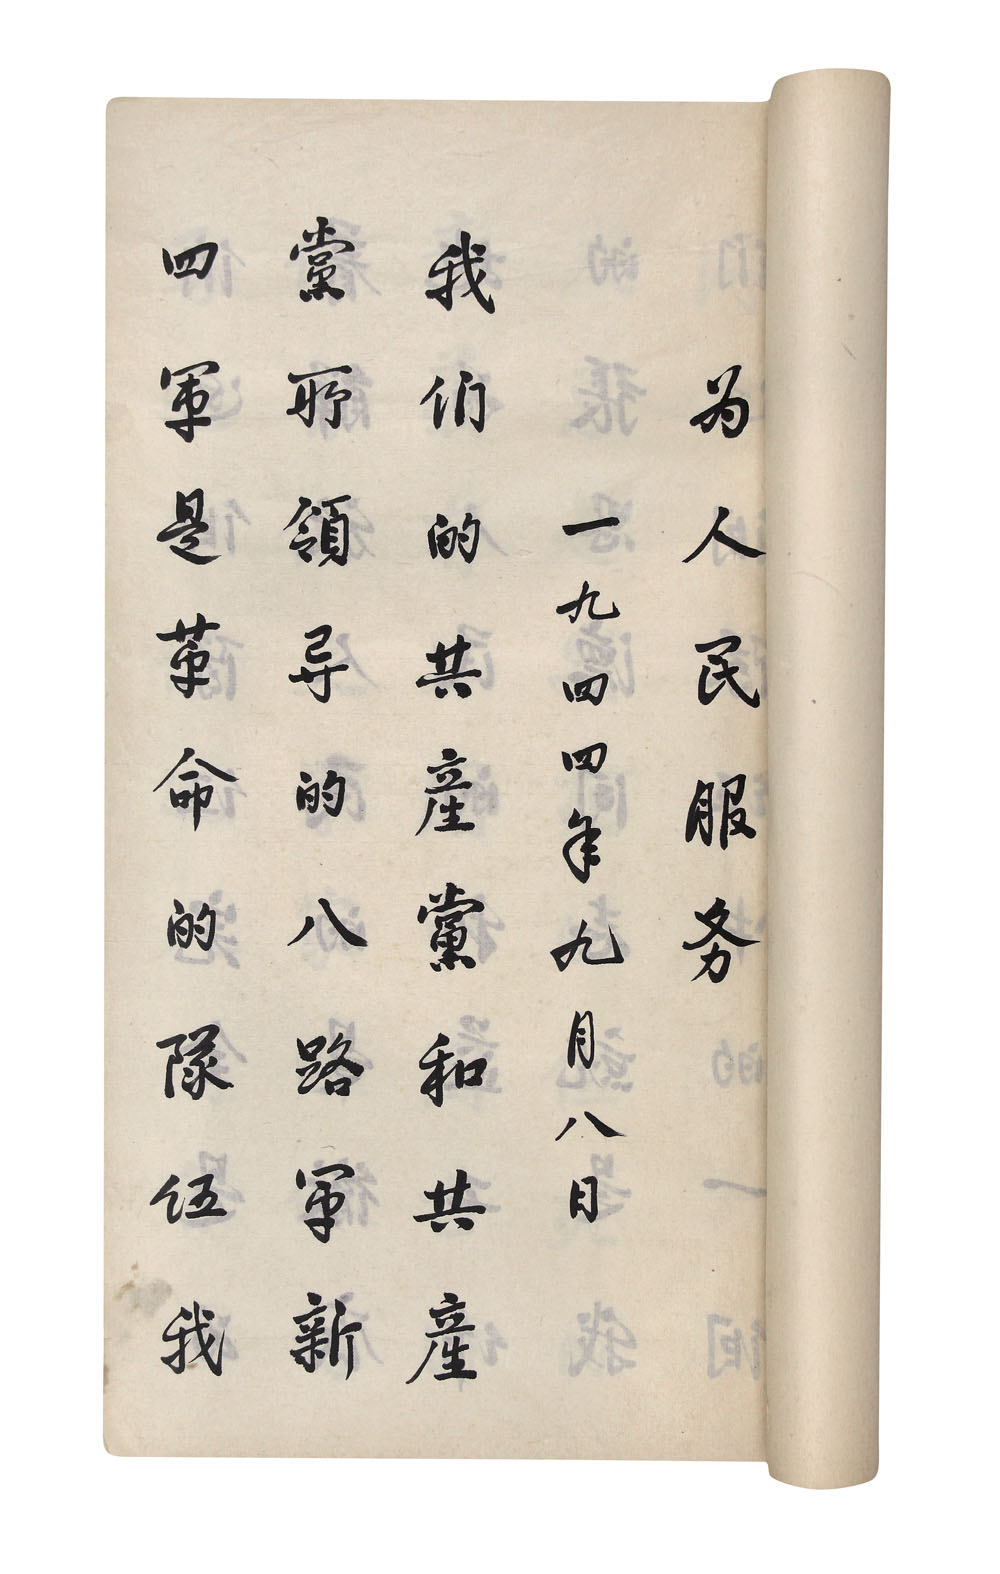 为人民服务
一九四四年九月八日
我们的共産黨和共産
黨所領导的八路軍新
四軍是革命的隊伍我